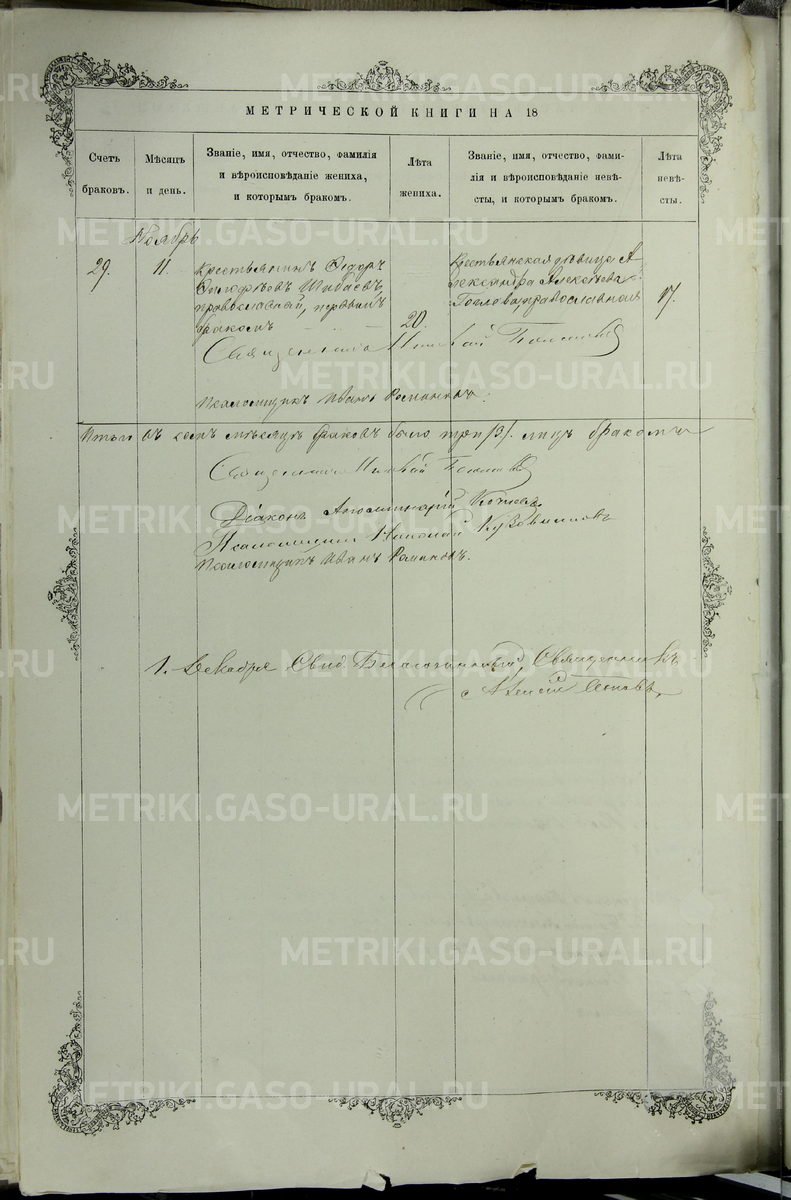 МЕТРИЧЕСКОЙ КНИГИ НА 18
Счетъ браковъ.
Мѣсяцъ и день.
Званіе, имя, отчество, фамилія
и вѣроисповѣданіе жениха,
и которымъ бракомъ.
Лѣта жениха.
Званіе, имя, отчество, фами-
лія и вѣроисповѣданіе невѣ-
сты, и которымъ бракомъ.
Лѣта невѣ-
сты.
Ноябрь
29. 11.
Крестьянинъ Ѳедоръ
Тимоѳѣевъ Шибаевъ,
православный, первымъ
бракомъ
20.
Крестьянская дѣвица А-
лександра Алексѣева
православная
17.
Священникъ
Псаломщикъ Иванъ Романовъ.
Итого въ семъ мѣсяцѣ браковъ было три /3/.
Священникъ
Діаконъ Аполлинарій
Псаломщикъ Николай Кузовниковъ
Псаломщикъ Иванъ Романовъ.
1. Декабря Свид. Благочинный, Священникъ
Попов
METRIKI.GASO-URAL.RU